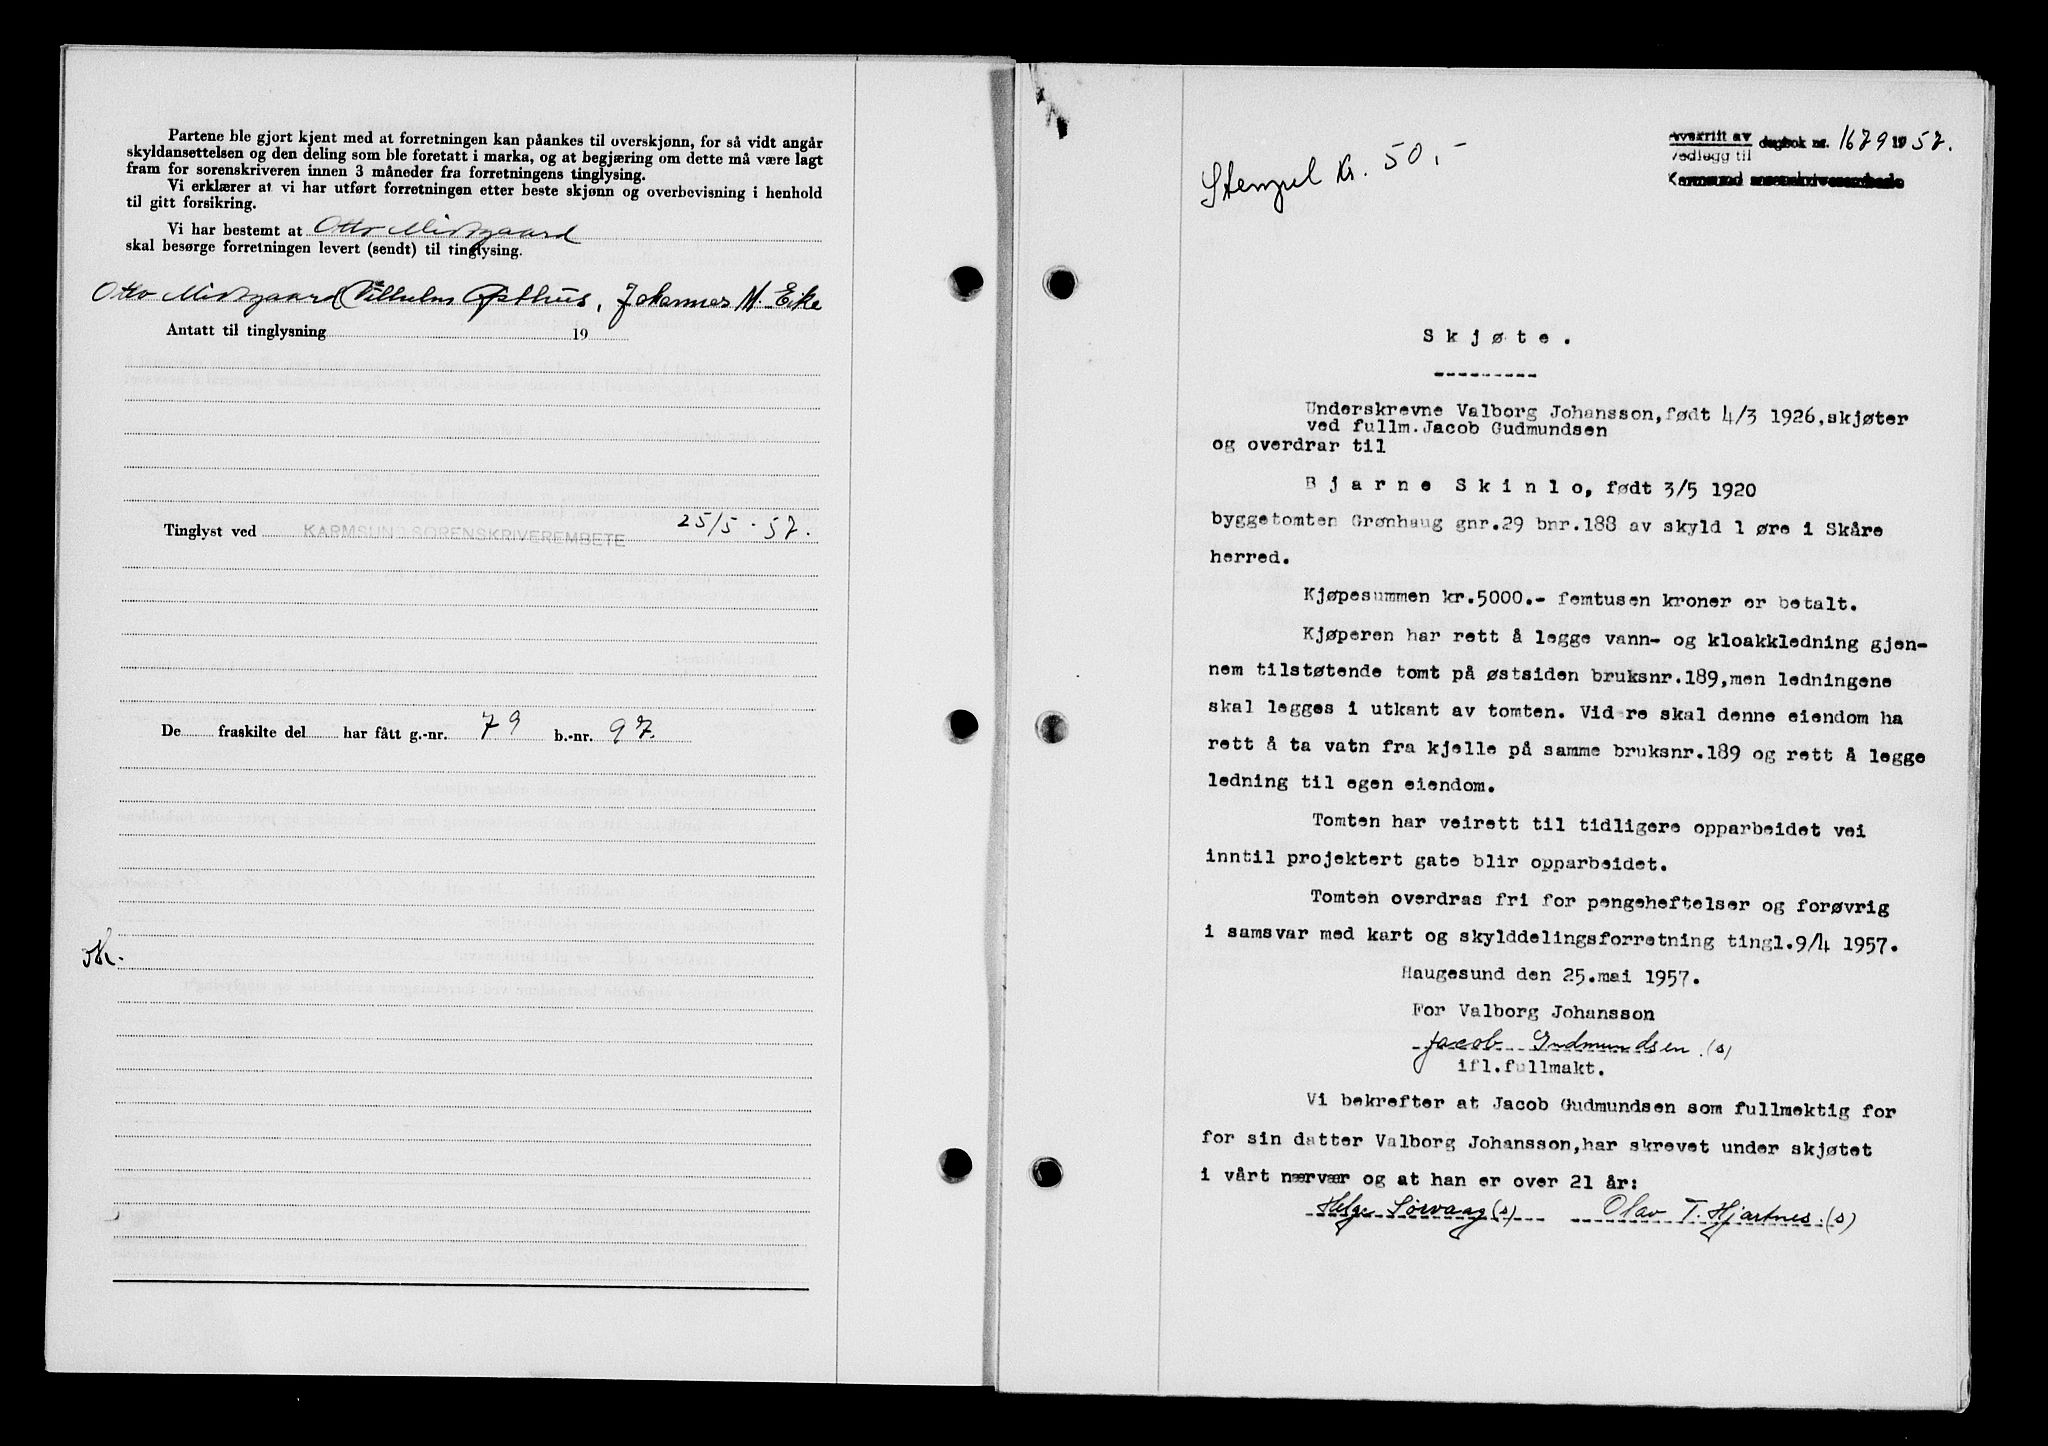 Partene ble gjort kjent med at forretningen kan påankes til overskjønn, for så vidt angår
skyldansettelsen og den deling som ble foretatt i marka, og at begjæring om dette må være lagt
fram for sorenskriveren innen 3 måneder fra forretningens tinglysing.
Vi erklærer at vi har utført forretningen etter beste skjønn og overbevisning i henhold
til gitt forsikring.
Vi har bestemt at Otto Midtgaard
skal besørge forretningen levert (sendt) til tinglysing.
Otto Midtgaard Vilhelm Østhus, Johannes M. Eike
Antatt til tinglysning 19
Tinglyst ved KARMSUND SORENSKRIVEREMBETE 25/5-57.
De fraskilte del har fått g.-nr. 79 b.-nr. 97.
Avskrift av
Vedlegg til dagbok nr. 1679 1957.
Karmsund sorenskriverembede
Stempel kr. 50,-
Skjøte.
Underskrevne Valborg Johansson, født 4/3 1926, skjøter
ved fullm. Jacob Gudmundsen
og overdrar til
Bjarne Skinlo, født 3/5 1920
byggetomten Grønhaug gnr.29 bnr.188 av skyld 1 øre i Skåre
herred.
Kjøpesummen kr.5000.- femtusen kroner er betalt.
Kjøperen har rett å legge vann- og kloakkledning gjen-
nem tilstøtende tomt på østsiden bruksnr.189, men ledningene
skal legges i utkant av tomten. Vid re skal denne eiendom ha
rett å ta vatn fra kjelle på samme bruksnr.189 og rett å legge
ledning til egen eiendom.
Tomten har veirett til tidligere opparbeidet vei
inntil projektert gate blir opparbeidet.
Tomten overdras fri for pengeheftelser og forøvrig
i samsvar med kart og skylddelingsforretning tingl.9/4 1957.
Haugesund den 25.mai 1957.
For Valborg Johansson
Jacob Gudmundsen.(s)
ifl.fullmakt.
Vi bekrefter at Jacob Gudmundsen som fullmektig for
for sin datter Valborg Johansson, har skrevet under skjøtet
i vårt nærvær og at han er over 21 år:
Helge Sørvaag (s) Olav T. Hjartnes.(s)